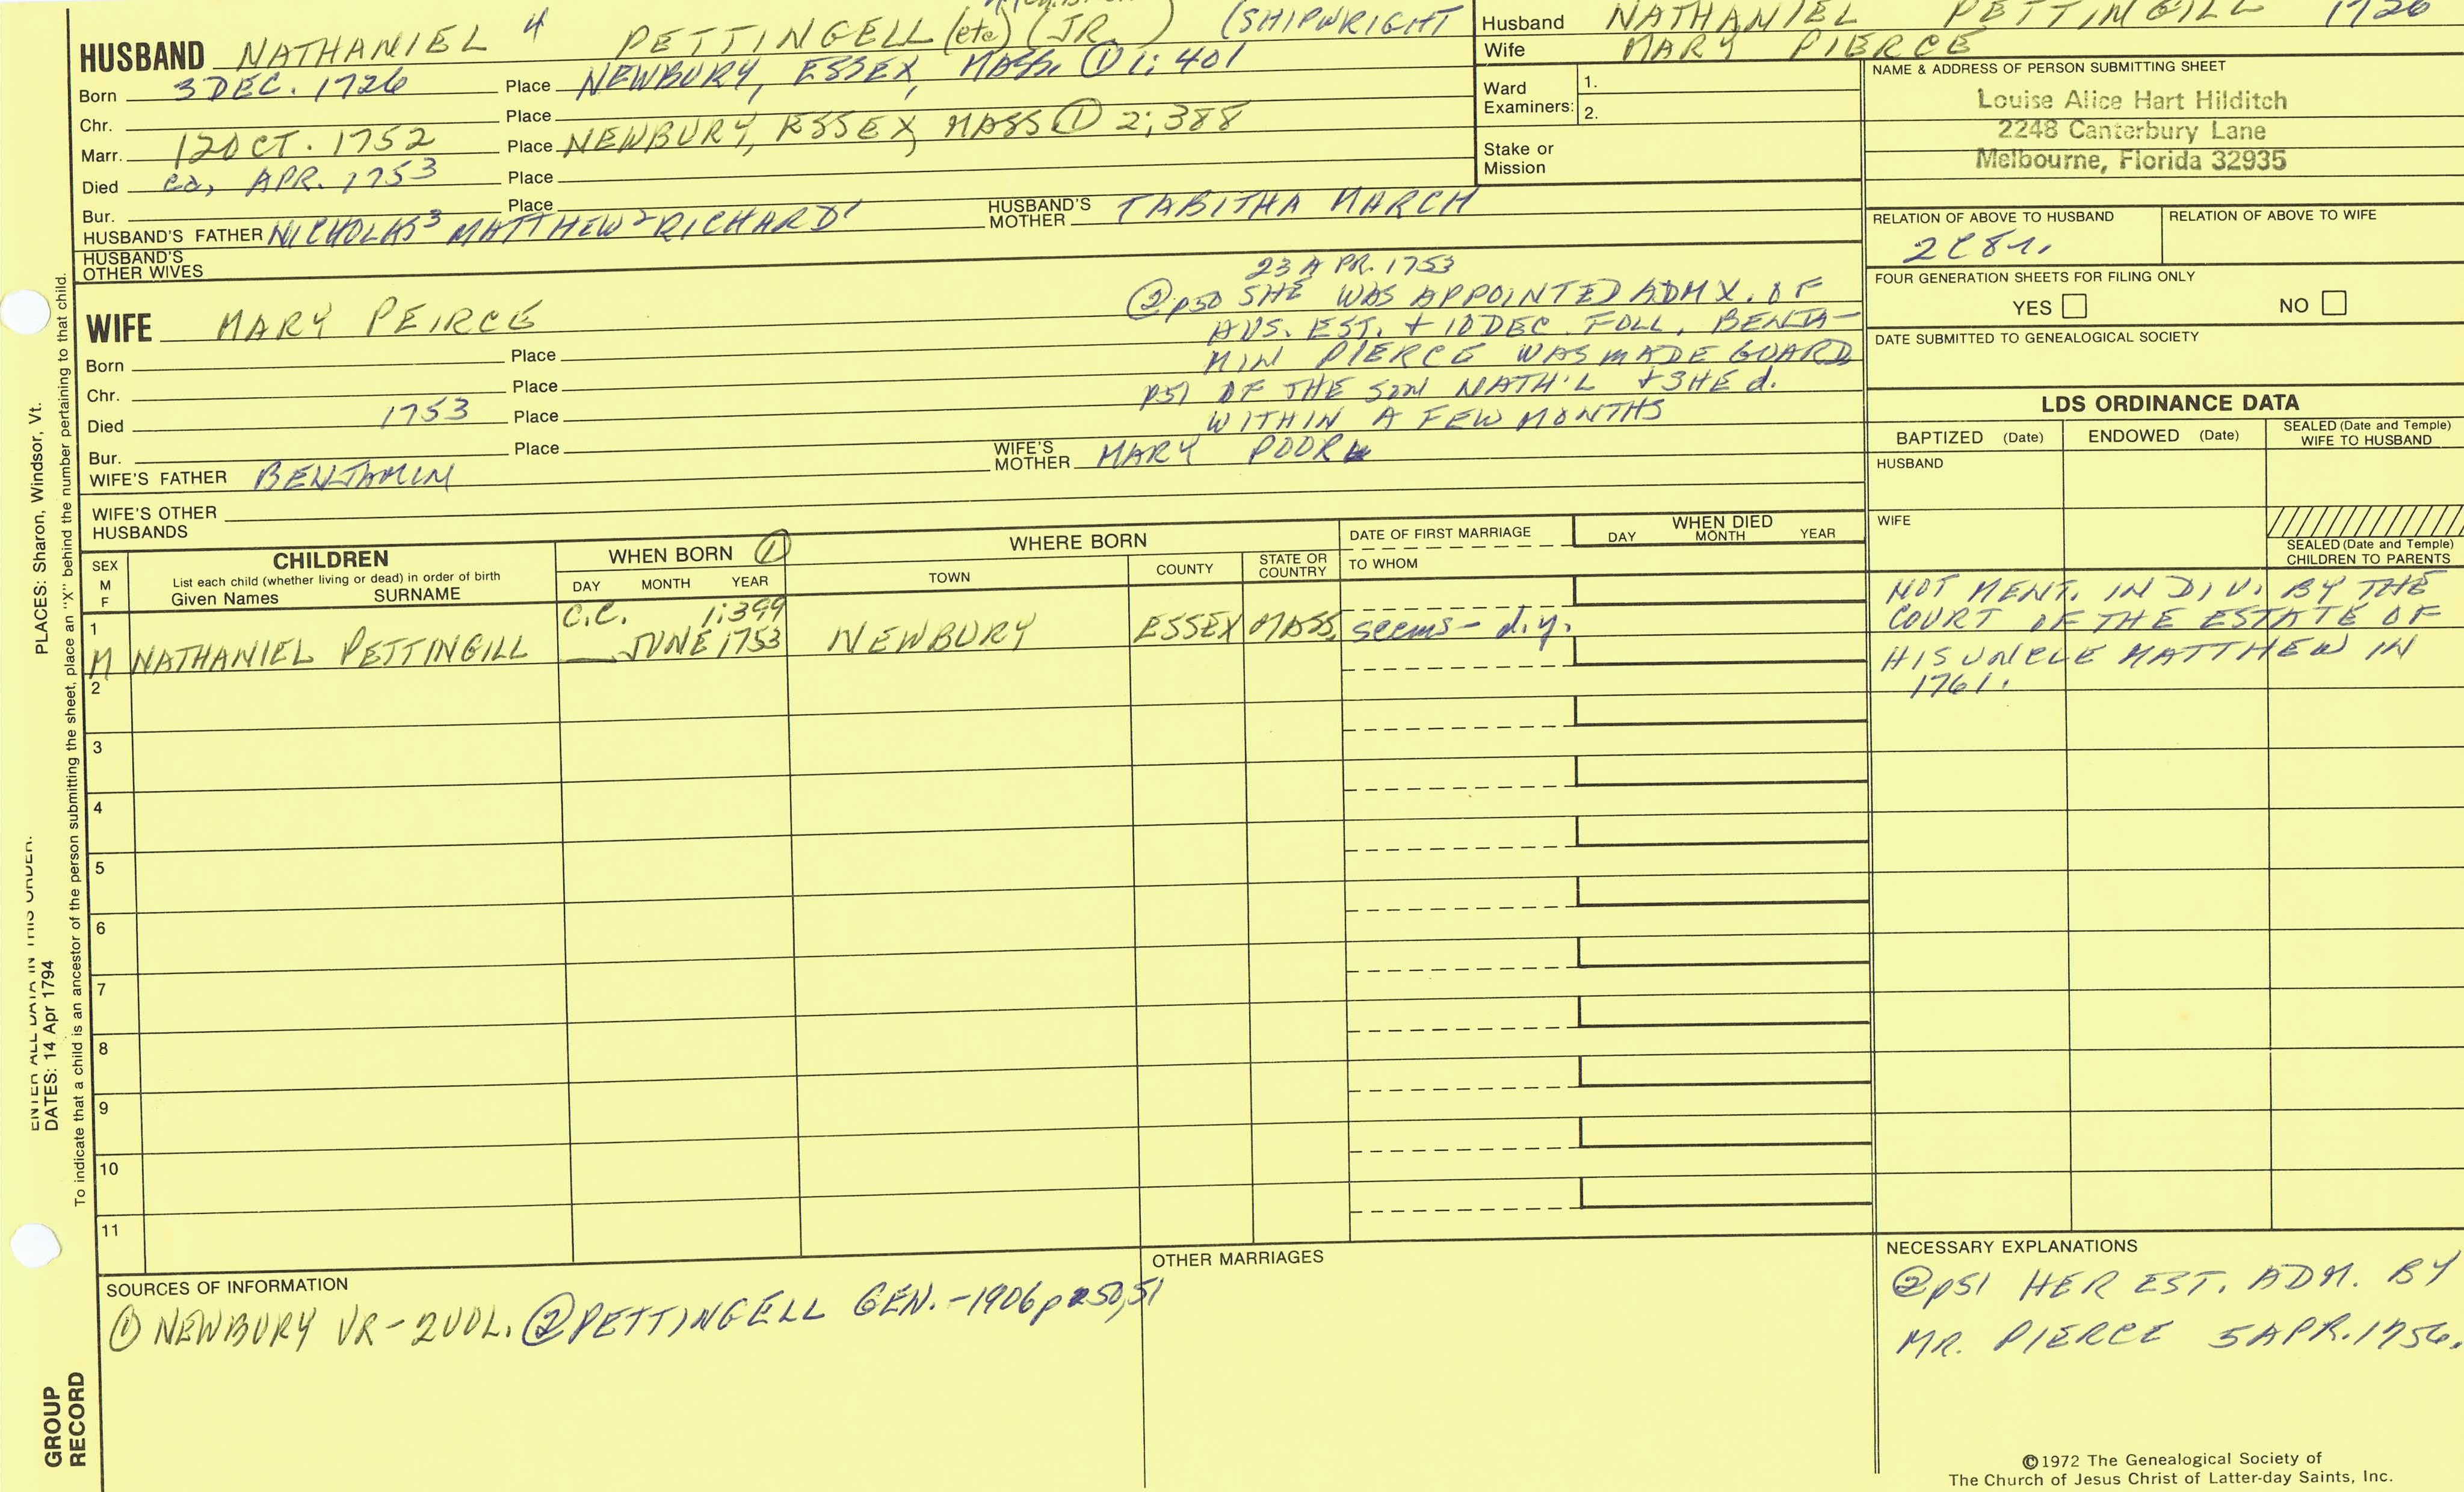 HUSBAND NATHANIEL 4 PETTINGELL (etc) (JR ) (SHIPWRIGHT
Born 3 DEC. 1726 Place NEWBURY, ESSEX, MASS. ① 1:401
Chr. Place
Marr. 12 OCT. 1752 Place NEWBURY, ESSEX, MASS ① 2:388
Died ca, APR. 1753 Place
Bur. Place
HUSBAND'S FATHER NICHOLAS3 MATTHEW2 RICHARD1 HUSBAND'S MOTHER TABITHA MARCH
HUSBAND'S
OTHER WIVES
Husband NATHANIEL PETTINGILL 1726
Wife MARY PIERCE
Ward
Examiners: 1.
2.
Stake or
Mission
NAME & ADDRESS OF PERSON SUBMITTING SHEET
Louise Alice Hart Hilditch
2248 Canterbury Lane
Melbourne, Florida 32935
RELATION OF ABOVE TO HUSBAND RELATION OF ABOVE TO WIFE
2C8r.
FOUR GENERATION SHEETS FOR FILING ONLY
YES NO
DATE SUBMITTED TO GENEALOGICAL SOCIETY
WIFE MARY PEIRCE
Born Place
Chr. Place
Died 1753 Place
Bur. Place
WIFE'S FATHER BENJAMIN WIFE'S MOTHER MARY POOR
WIFE'S OTHER
HUSBANDS
23 APR. 1753
② p50 SHE WAS APPOINTED ADMX. OF
HUS. EST. + 10 DEC. FOLL. BENJA-
MIN PIERCE WAS MADE GUARD
p51 OF THE SON NATH'L + SHE d.
WITHIN A FEW MONTHS
LDS ORDINANCE DATA
BAPTIZED (Date) ENDOWED (Date) SEALED (Date and Temple)
WIFE TO HUSBAND
HUSBAND
WIFE
SEALED (Date and Temple)
CHILDREN TO PARENTS
SEX
M
F
CHILDREN
List each child (whether living or dead) in order of birth
Given Names SURNAME
WHEN BORN ①
DAY MONTH YEAR
WHERE BORN
TOWN COUNTY STATE OR
COUNTRY
DATE OF FIRST MARRIAGE
TO WHOM
WHEN DIED
DAY MONTH YEAR
C.C. 1:399
1
M NATHANIEL PETTINGILL JUNE 1753 NEWBURY ESSEX MASS. seems - d.y.
NOT MENT. IN DIV. BY THE
COURT OF THE ESTATE OF
HIS UNCLE MATTHEW IN
1761.
2
3
4
5
6
7
8
9
10
11
SOURCES OF INFORMATION
① NEWBURY VR - 2 VOL. ② PETTINGELL GEN. - 1906 p 50,51
OTHER MARRIAGES
NECESSARY EXPLANATIONS
② p51 HER EST. ADM. BY
MR. PIERCE 5 APR. 1756.
©1972 The Genealogical Society of
The Church of Jesus Christ of Latter-day Saints, Inc.
ENTER ALL DATA IN THIS ORDER:
DATES: 14 Apr 1794 PLACES: Sharon, Windsor, Vt.
To indicate that a child is an ancestor of the person submitting the sheet, place an "X" behind the number pertaining to that child.
GROUP
RECORD